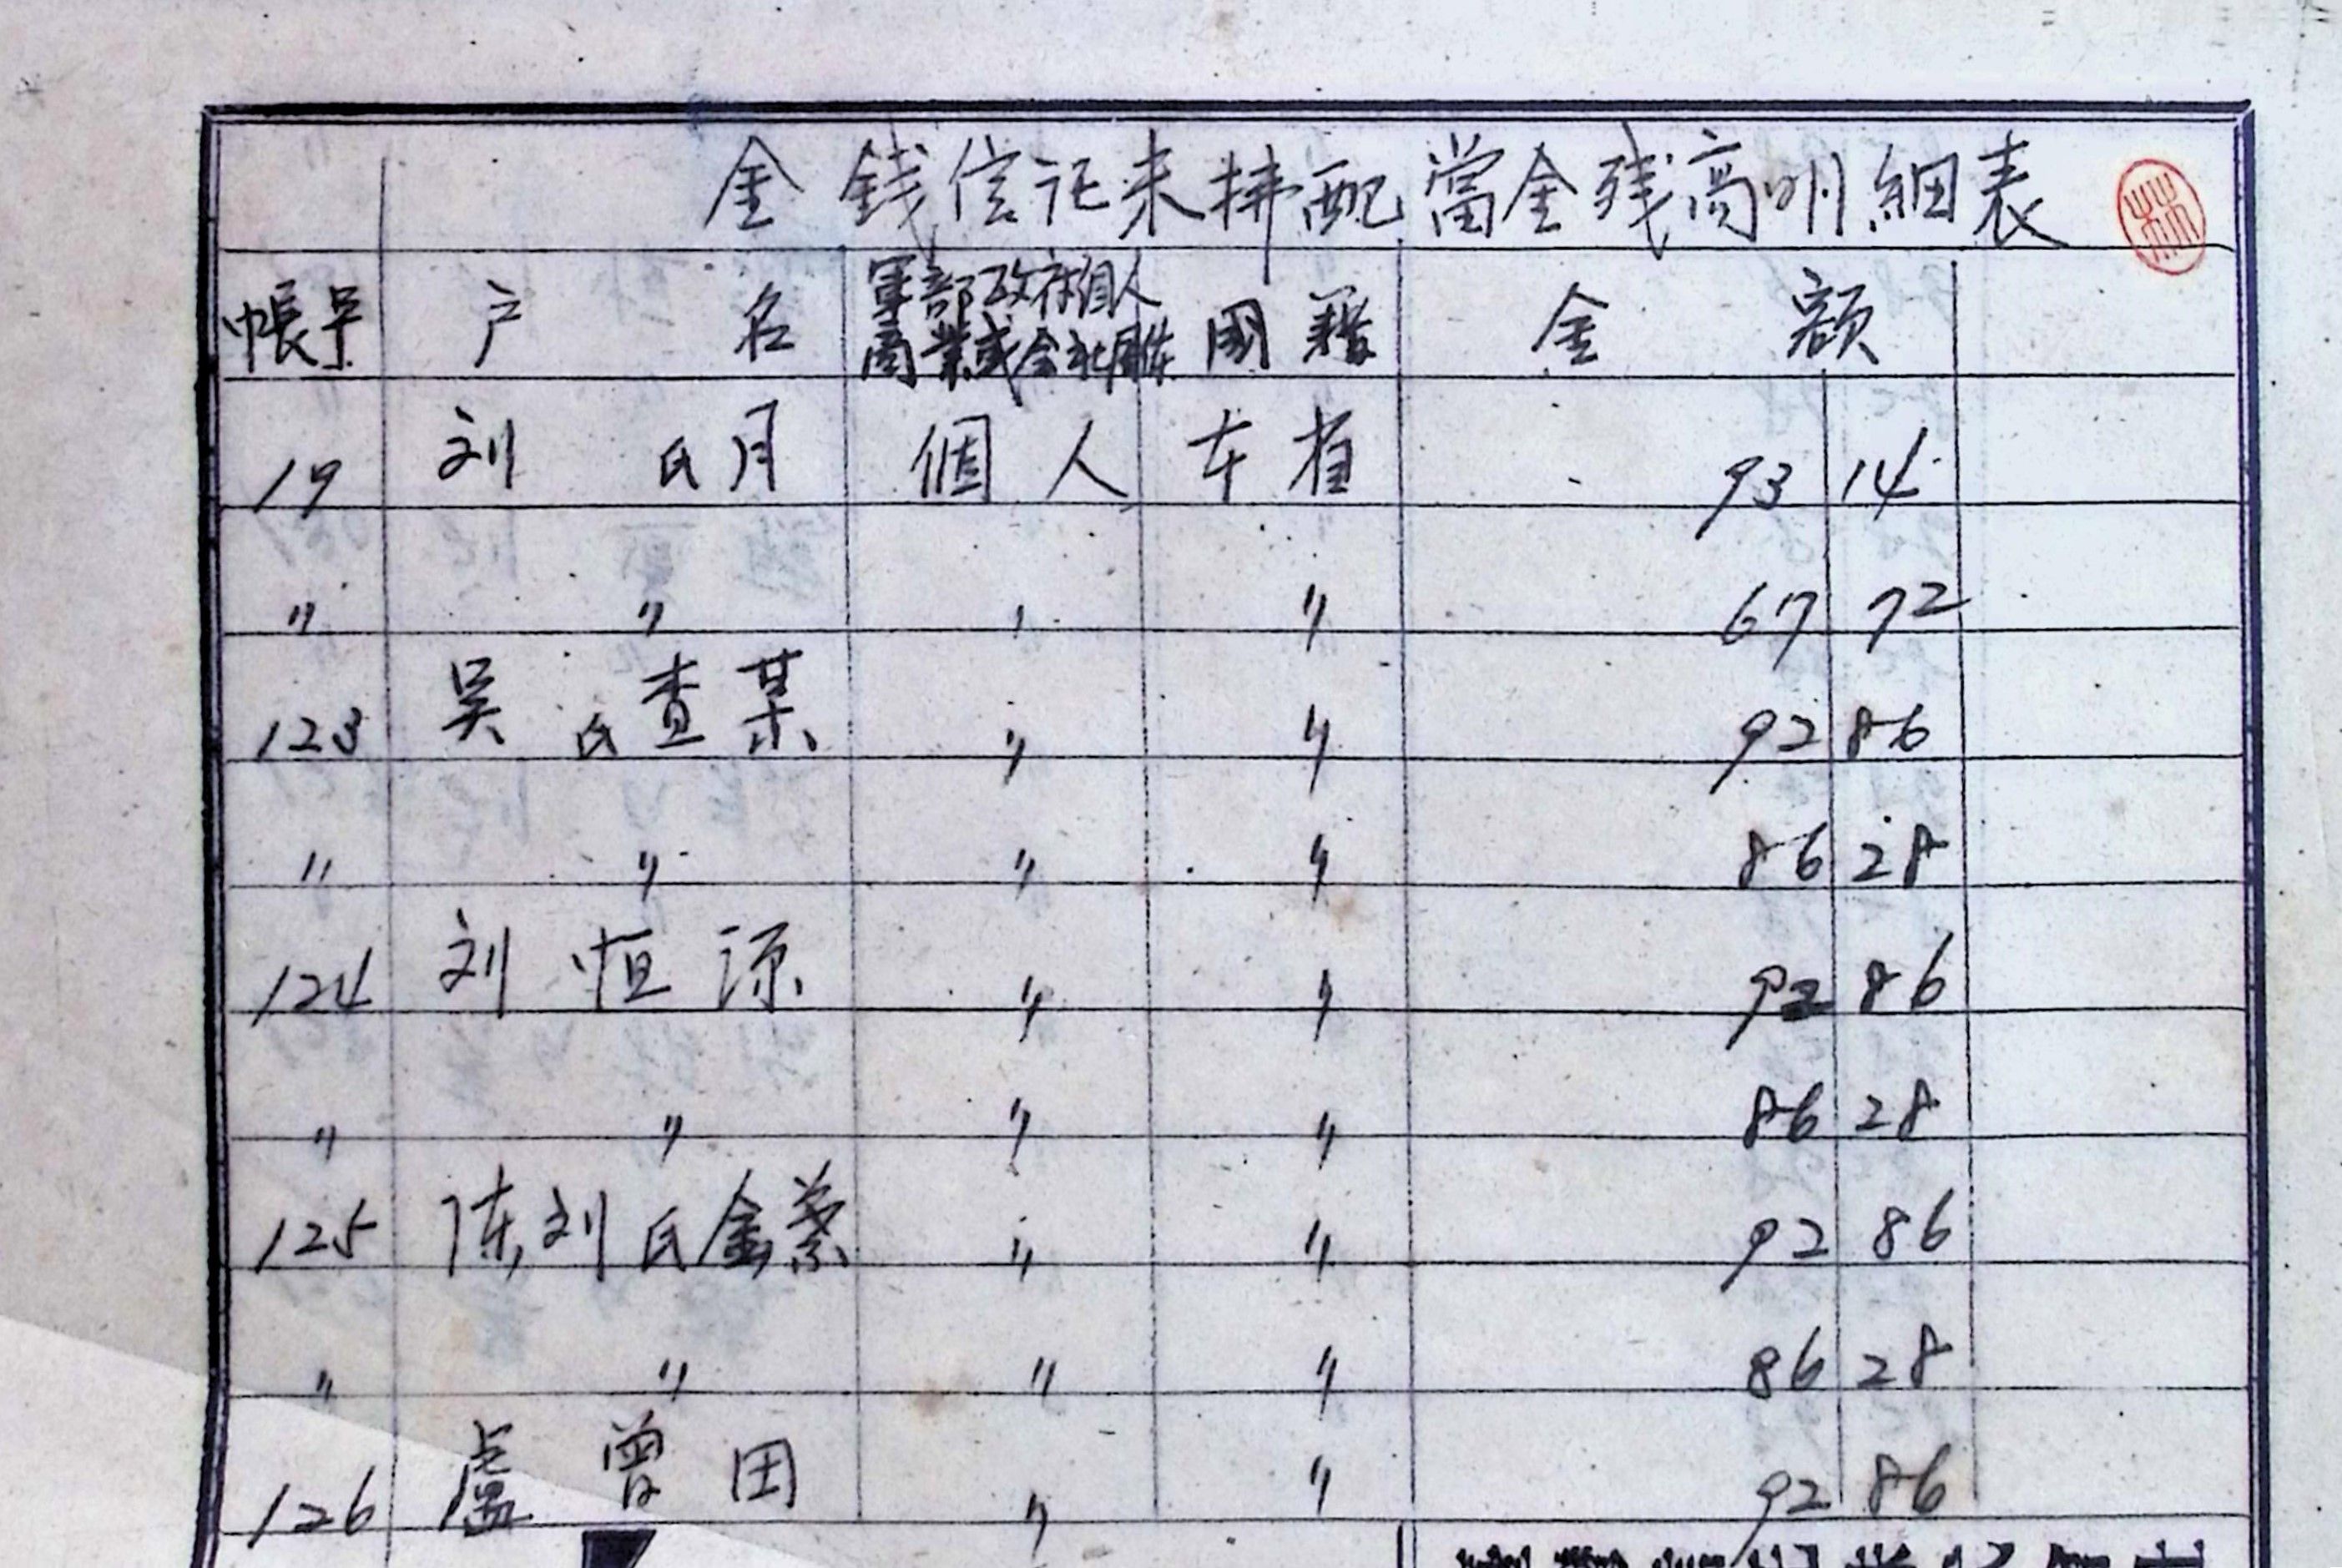 金錢信託未拂配當金残高明細表
帳号 户名 軍部政府個人商業或会社團体 國籍 金額
19 刘氏月 個人 本省 93 14
〃 〃 〃 〃 67 72
123 吴氏查某 〃 〃 92 86
〃 〃 〃 〃 86 28
124 刘恒源 〃 〃 92 86
〃 〃 〃 〃 86 28
125 陈刘氏金葉 〃 〃 92 86
〃 〃 〃 〃 86 28
126 盧曾田 〃 〃 92 86